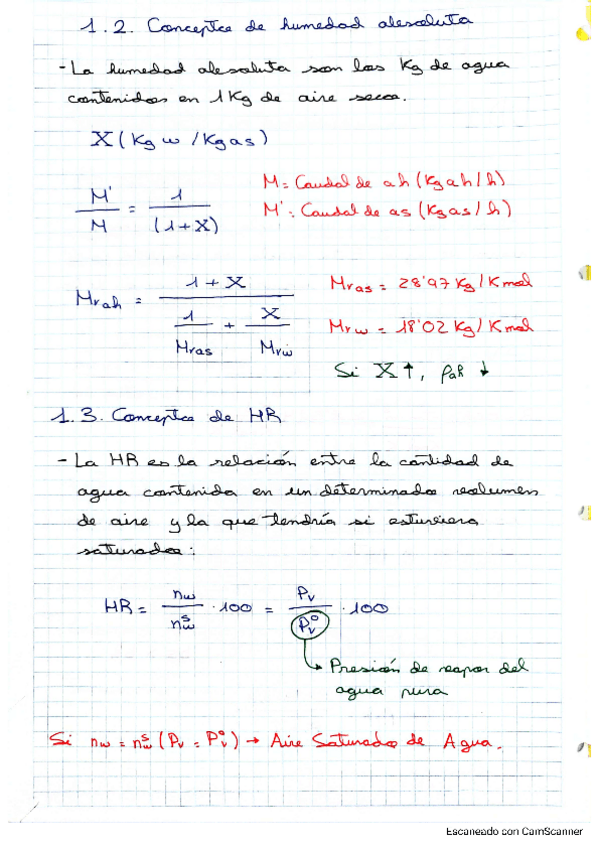 1.2. Concepto de humedad absoluta
- La humedad absoluta son los Kg de agua
contenidos en 1Kg de aire seco.
X (Kg w / Kg as)
M'/M = 1/(1+X)
M = Caudal de ah (Kg ah / h)
M' = Caudal de as (Kg as / h)
Mrah = (1+X)/(1/Mras + X/Mrw)
Mras = 28'97 Kg / Kmol
Mrw = 18'02 Kg / Kmol
Si X ↑, ρah ↓
1.3. Concepto de HR
- La HR es la relación entre la cantidad de
agua contenida en un determinado volumen
de aire y la que tendría si estuviera
saturado:
HR = nw/nwˢ · 100 = Pv/Pv° · 100
Presión de vapor del
agua pura
Si nw = nwˢ (Pv = Pv°) → Aire Saturado de Agua.
Escaneado con CamScanner